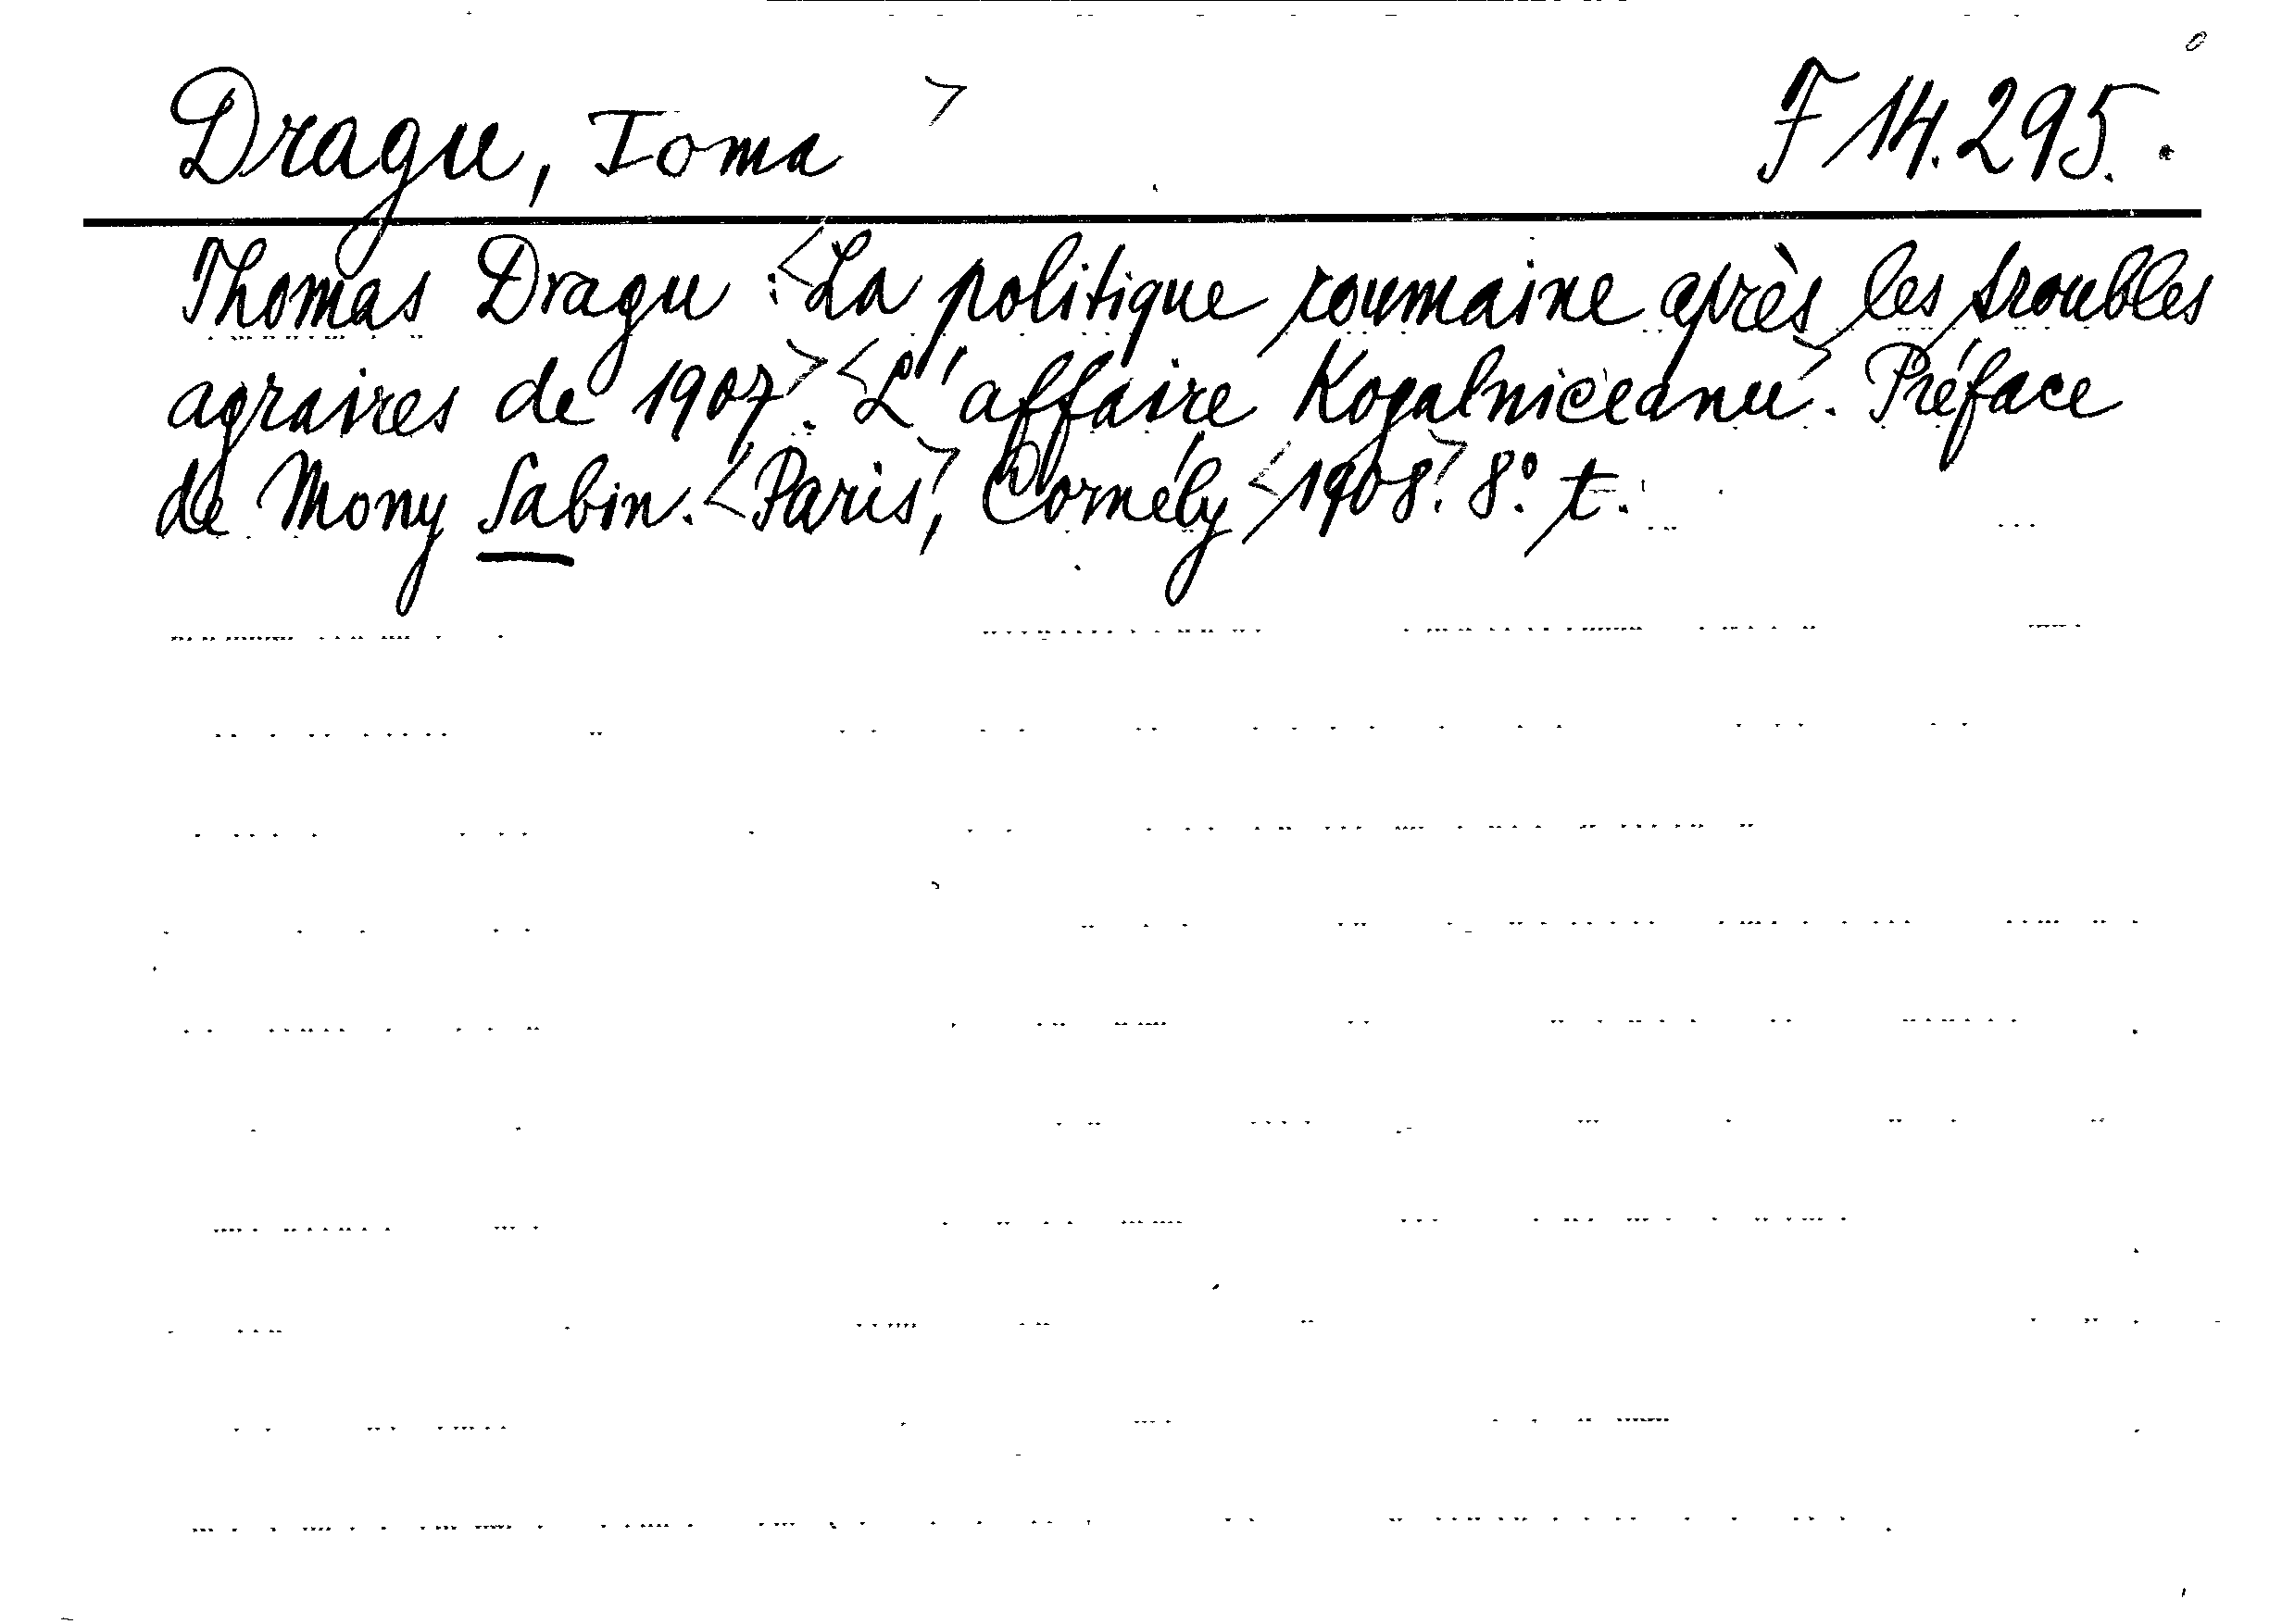 Dragu, Toma > F 14.295.
Thomas Dragu : <La politique roumaine après les troubles
agraires de 1907>. <L'affaire Kogalniceanu>. Préface
de Mony Sabin. <Paris>, Cornély <1908>. 8° t.